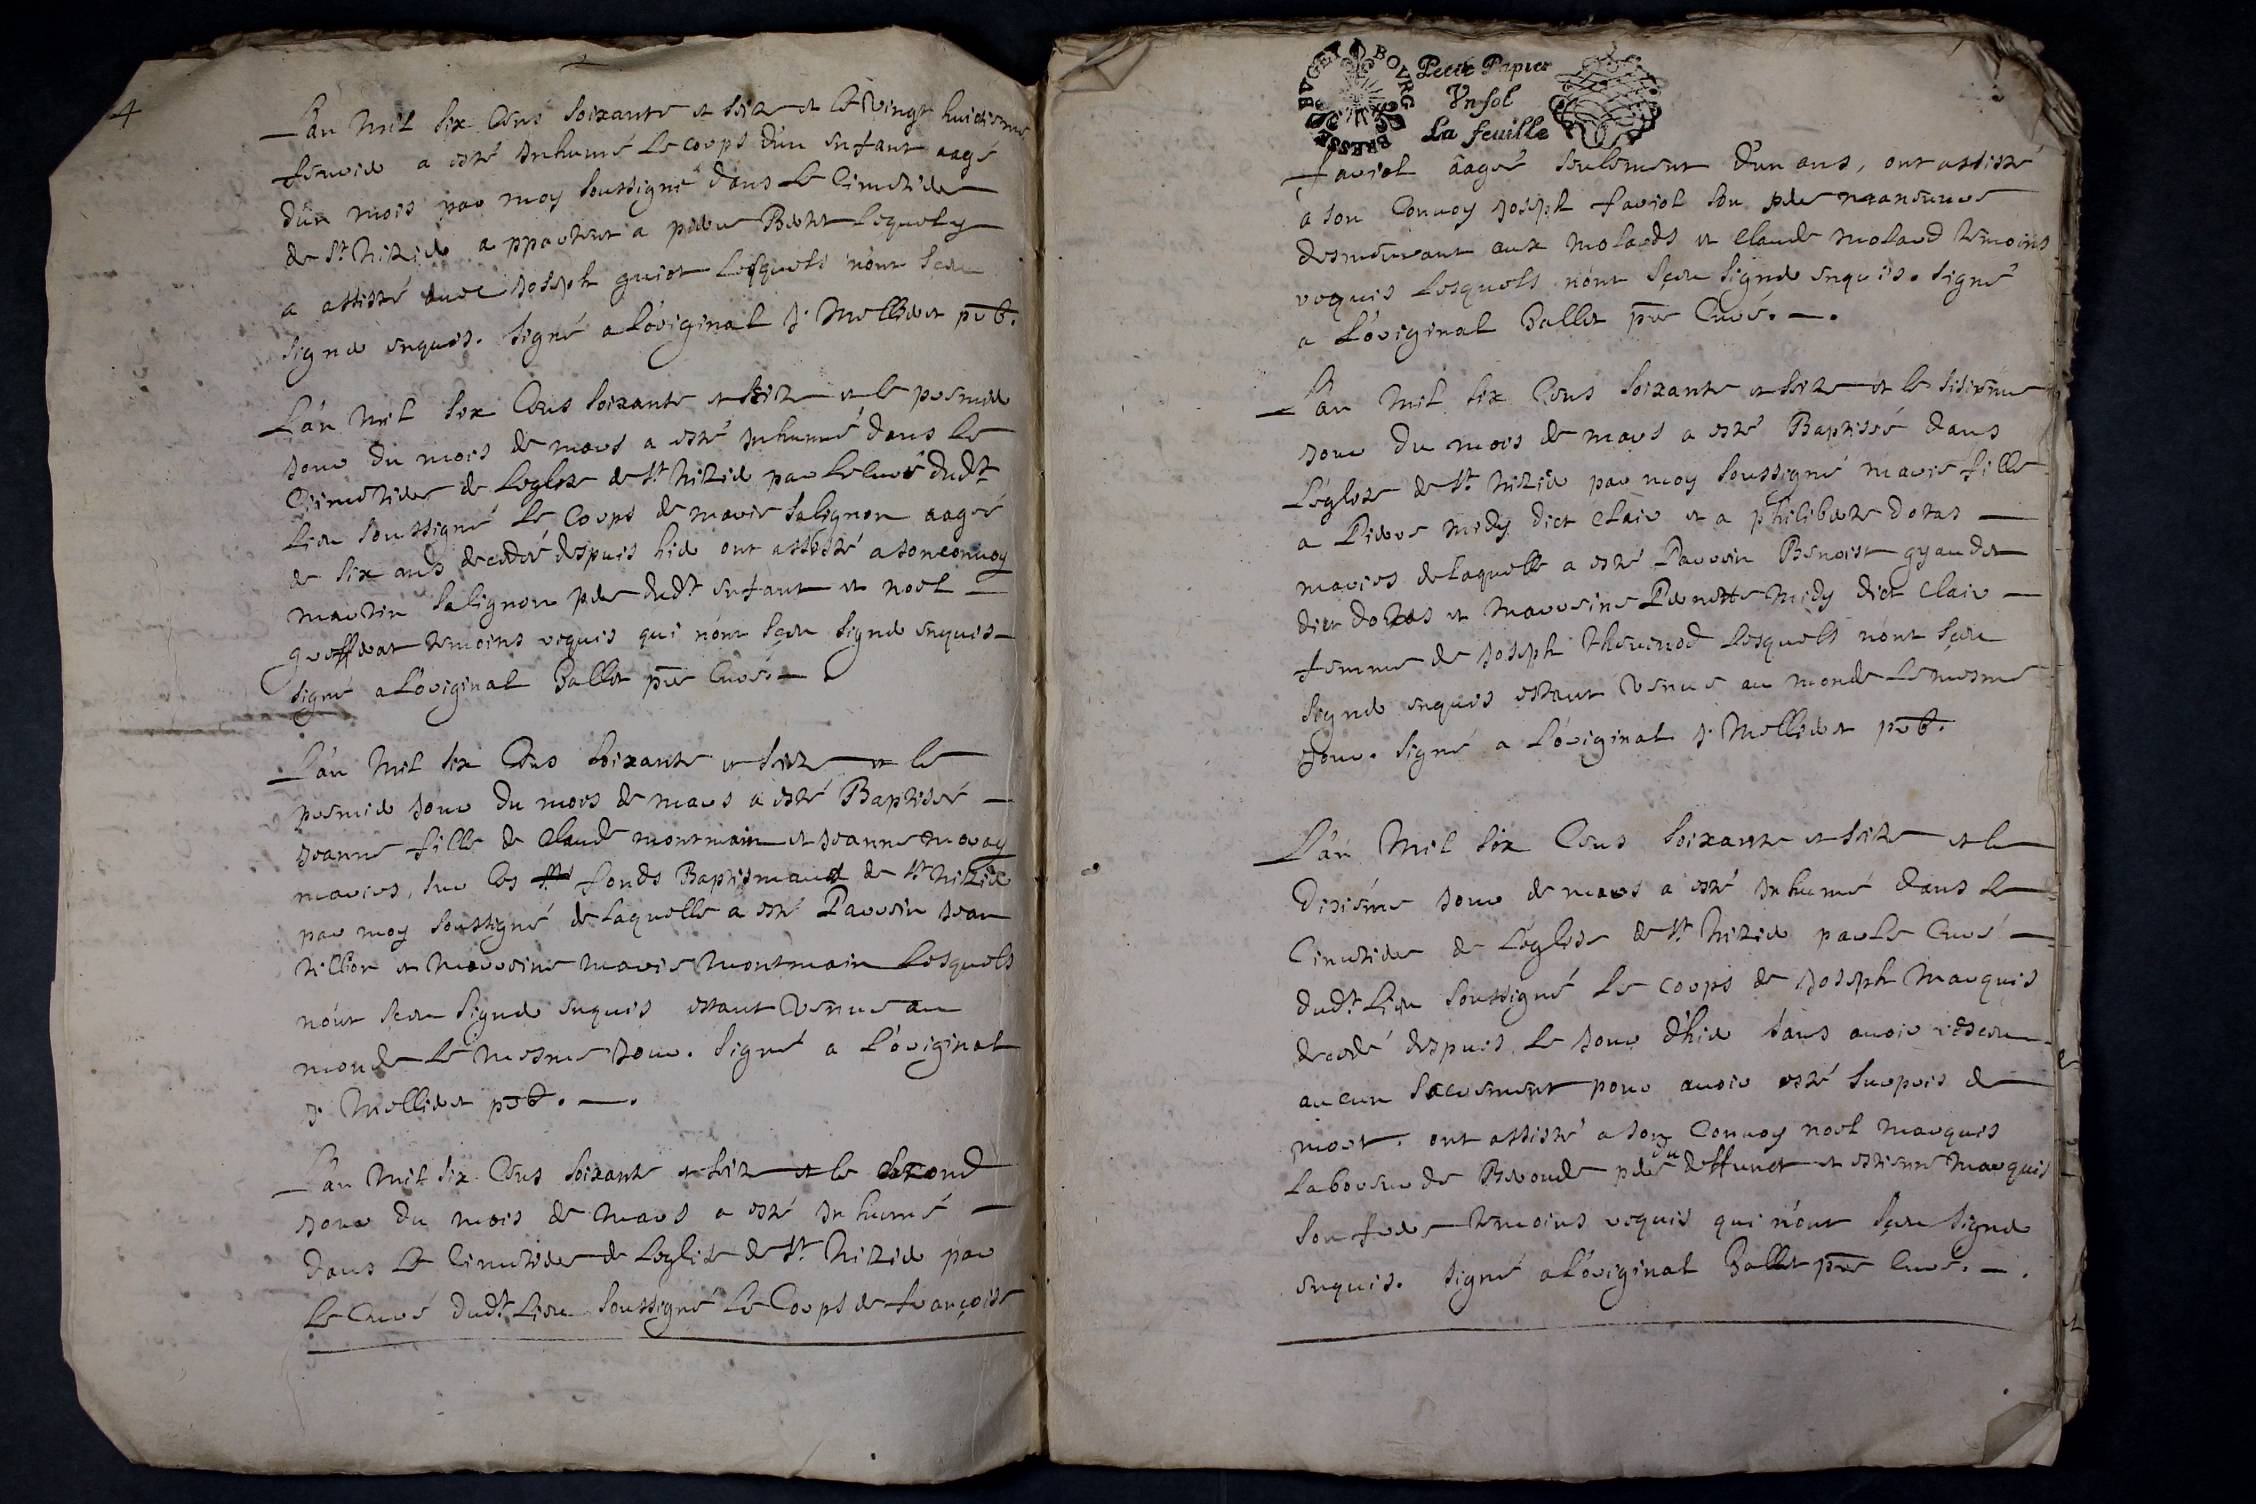 4
L'an mil six Cens soixante et seize et le vingt huictiesme
febvrier a esté inhumé le corps d'un enfant aagé
d'un mois par moy soussigné dans le Cimetiere
de St Nizier appartent a pierre lequel y
a assisté avec Joseph guiot lesquels n'ont sceu
signer enquis. signé a l'original J. Mellieret pbr.
L'an mil six Cens soixante et seize et le premier
jour du mois de mars a esté inhumé dans le
Cimetiere de leglize de St Nizier par le curé dudt
lieu soussigné le corps de marie salignon aagée
de six ans decedée despuis hier ont assisté a son convoy
martin salignon pere dudt enfant et noel
greffierat temoins requis qui n'ont sceu signer enquis
signé a l'original Ballet pre Curé
L'an mil six Cens soixante et seize et le
premier jour du mois de mars a esté Baptisée
jeanne fille de Claude montmain et jeanne moray
mariés, sur les fonds Baptismaux de St Nizier
par moy soussigné de laquelle a esté Parrein jean
tillier et Marreine marie Montmain lesquels
n'ont sceu signer enquis estant venue au
monde le mesme jour. signé a l'original
J. Mellieret pbr.
L'an mil six Cens soixante et seize et le second
jour du mois de mars a esté inhumé
dans le Cimetiere de leglise de St Nizier par
le Curé dudt lieu soussigné le Corps de françoise
BOVRG BRESSE BVGEY
Petit Papier
Vn sol
La feuille
faviol aagée seulement d'un ans, ont assisté
a son Convoy joseph faviol son pere manœuvre
desmeurant aux molards et Claude molard temoins
requis lesquels n'ont sceu signer enquis. signé
a l'original Ballet pre Curé.
L'an mil six Cens soixante et seize et le sisiesme
jour du mois de mars a esté Baptisée dans
l'eglize de St Nizier par moy soussigné marie fille
a Pierre midy dict Clair et a philiberte dotas
mariés de laquelle a esté Parrein Benoist gyaudet
dict dotas et Marreine Pernette midy dict Clair
femme de joseph thevenod lesquels n'ont sceu
signer enquis estant venue au monde le mesme
jour. signé a l'original J. Mellieret pbr.
L'an mil six Cens soixante et seize et le
dixiéme jour de mars a esté inhumé dans le
Cimetiere de l'eglise de St Nizier par le Curé
dudt lieu soussigné le corps de joseph Marquis
decedé despuis le jour d'hier sans avoir receu
aucun sacrement pour avoir esté surpris de
mort. ont assisté a son Convoy noel marquis
laboureur de pere du deffunct et estienne Marquis
son frere temoins requis qui n'ont sceu signer
enquis. signé a l'original Ballet pre Curé.